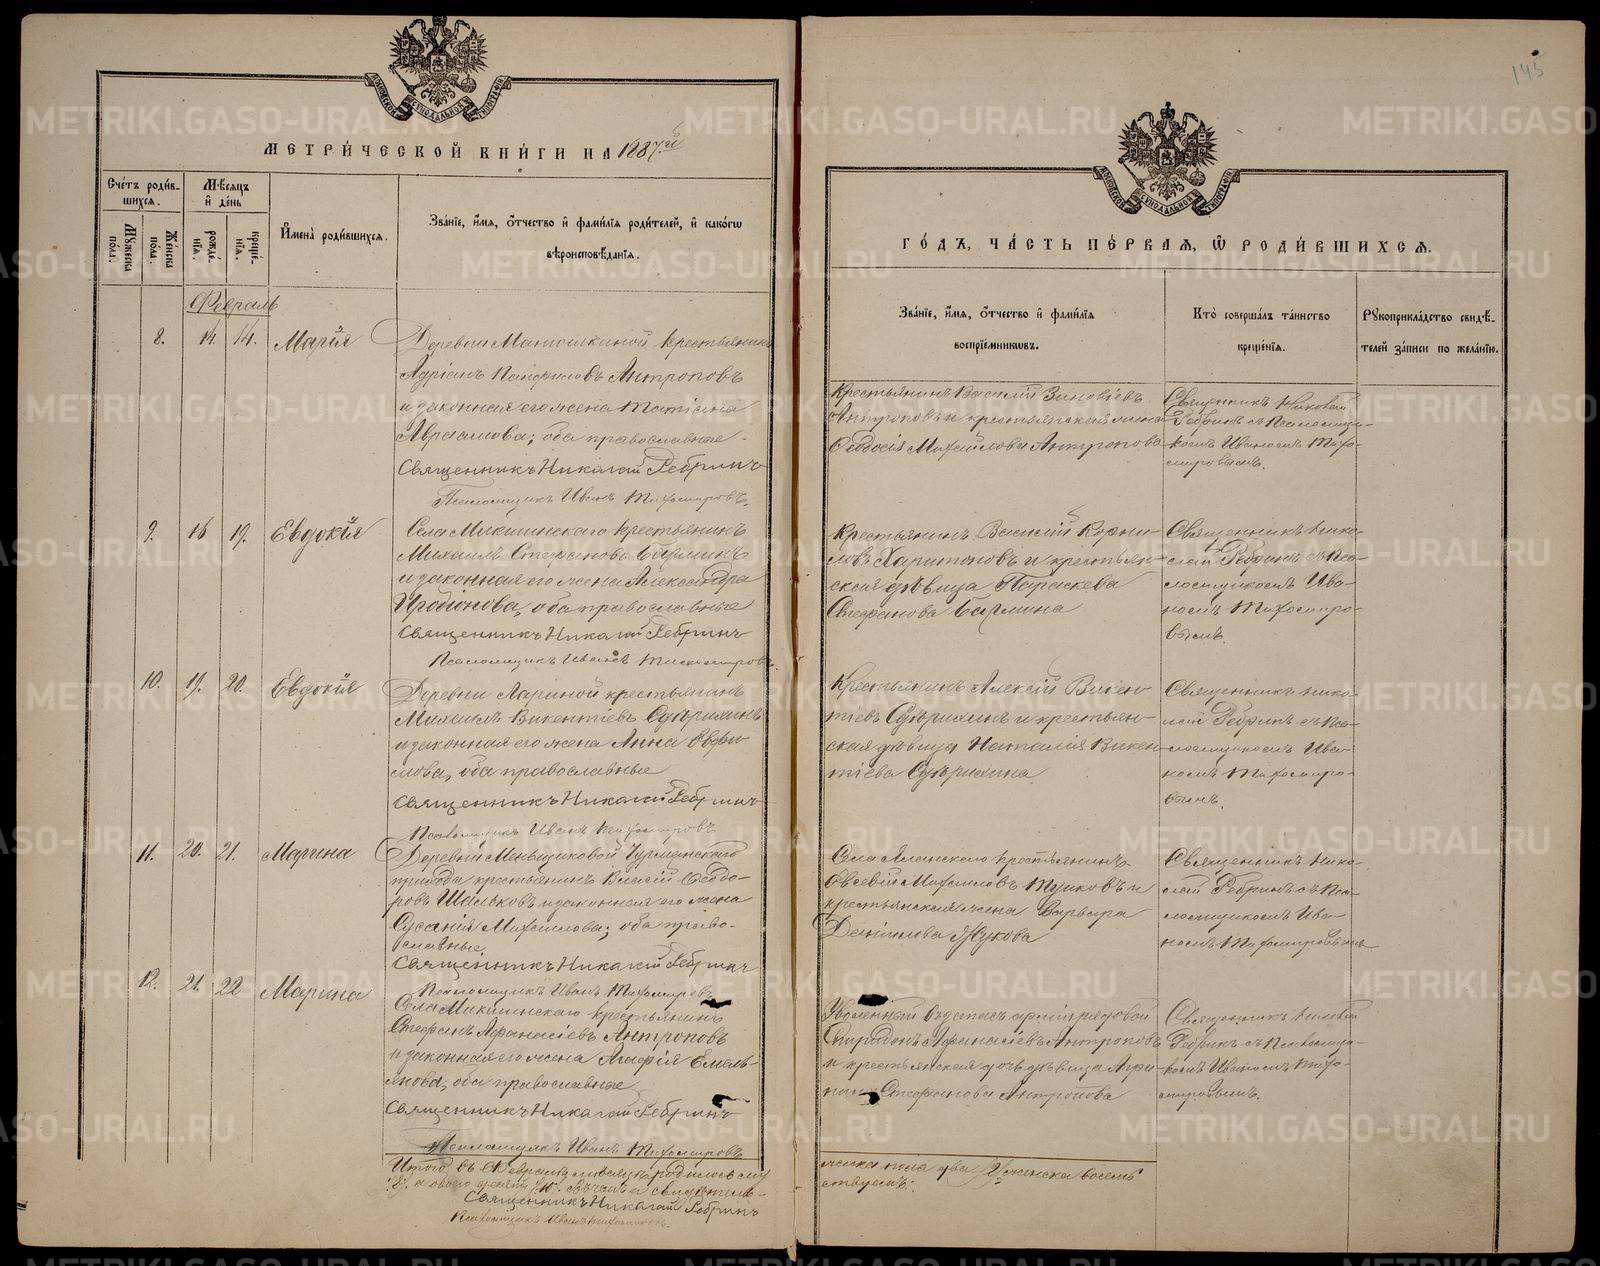 МЕТРИ́ЧЕСКОЙ КНИ́ГИ НА 1887й
Сче́тъ роди́в-
шихся.
Мѣ́сяцъ
и҆ де́нь
Мꙋ́жеска
по́ла.
Же́нска
по́ла.
рожде́-
нїѧ.
креще́-
нїѧ.
И҆мена̀ роди́вшихся.
Зва́нїе, и҆́мѧ, ѻ҆́тчество и҆ фами́лїѧ роди́телей, и҆ како́гѡ
вѣроисповѣ́данїѧ.
Февраль
8. 14. 14. Марія
Деревни Матюшкиной крестьянинъ
Адріанъ Панфиловъ Антроповъ
и законная его жена Татіана
Авраамова; оба православные.
Священникъ Николай Ребринъ
Псаломщикъ Иванъ Тихомировъ.
9. 16 19. Евдокія
Села Микшинскаго крестьянинъ
Михаилъ Стефановъ Барминъ
и законная его жена Александра
Иродіонова, оба православные
Священникъ Николай Ребринъ
Псаломщикъ Иванъ Тихомировъ.
10. 19. 20. Евдокія
Деревни Лариной крестьянинъ
Михаилъ Викентіевъ
и законная его жена Анна Евфи-
мова, оба православные
Священникъ Николай Ребринъ
Псаломщикъ Иванъ Тихомировъ
11. 20. 21. Марина
Деревни Меньщиковой
прихода крестьянинъ Власій Ѳеодо-
ровъ и законная его жена
Сусанія Михаилова; оба право-
славные,
Священникъ Николай Ребринъ
Псаломщикъ Иванъ Тихомировъ
12. 21. 22 Марина
Села Микшинскаго крестьянинъ
Стефанъ Аѳанасіевъ Антроповъ
и законная его жена Агафія Емель-
янова, оба православные
Священникъ Николай Ребринъ
Псаломщикъ Иванъ Тихомировъ
Итого въ Февралѣ мѣсяцѣ родилось му
Священникъ Николай Ребринъ
Псаломщикъ Иванъ Тихомировъ.
145
ГО́ДЪ, ЧА́СТЬ ПЕ́РВАЯ, Ѡ҆ РОДИ́ВШИХСЯ.
Зва́нїе, и҆́мѧ, ѻ҆́тчество и҆ фами́лїѧ
воспрїе́мникѡвъ.
Кто̀ соверша́лъ та́инство
креще́нїѧ.
Рꙋкоприкла́дство свидѣ́-
телей за́писи по жела́нїю.
Крестьянинъ Василій Зиновіевъ
Антроповъ и крестьянская жена
Ѳеодосія Михаилова Антропова
Священникъ Николай
Ребринъ съ Псаломщи-
комъ Иваномъ Тихо-
мировымъ.
Крестьянинъ Василій Корни-
ловъ Харитоновъ и крестьян-
ская дѣвица Параскева
Стефанова Бармина
Священникъ Нико-
лай Ребринъ съ Пса-
ломщикомъ Ива-
номъ Тихомиро-
вымъ.
Крестьянинъ Алексій Викен-
тіевъ и крестьян-
ская дѣвица Наталія Викен-
тіева
Священникъ Нико-
лай Ребринъ съ Пса-
ломщикомъ Ива-
номъ Тихомиро-
вымъ.
Села крестьянинъ
Евсевій Михаиловъ и
крестьянская жена Варвара
Данилова Жукова
Священникъ Нико-
лай Ребринъ съ Пса-
ломщикомъ Ива-
номъ Тихомировымъ
Уволенный въ запасъ арміи рядовой
Спиридонъ Аѳанасіевъ Антроповъ
и крестьянская дочь дѣвица
Стефанова Антропова
Священникъ Николай
Ребринъ съ Псаломщи-
комъ Иваномъ Тихо-
мировымъ.
жеска пола два, женска восемь
ствуемъ:
METRIKI.GASO-URAL.RU